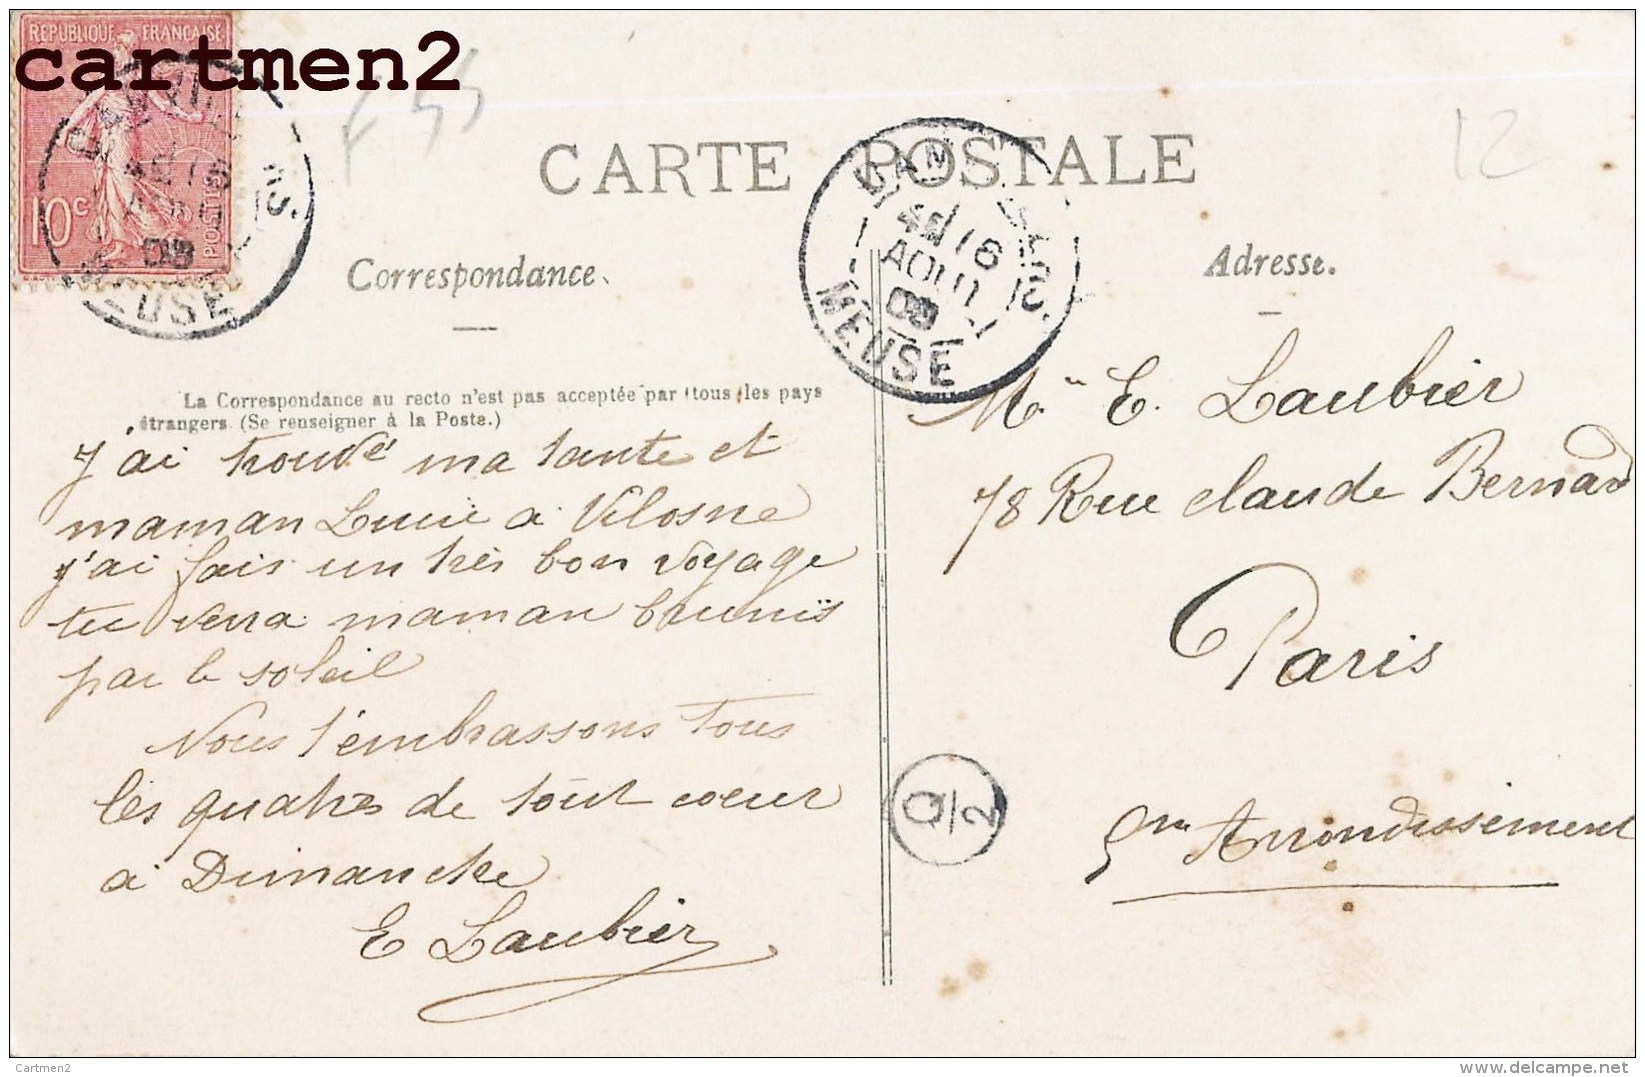 RÉPUBLIQUE FRANÇAISE
cartmen2
10c
POSTES
MEUSE
F 55
12
CARTE POSTALE
16
AOUT
08
MEUSE
Correspondance.
Adresse.
La Correspondance au recto n'est pas acceptée par tous les pays
étrangers (Se renseigner à la Poste.)
J'ai trouvé ma tante et
maman Lucie a Vilosne
j'ai fais un très bon voyage
tu verra maman brunis
par le soleil
Nous t'embrassons Tous
les quatres de tout coeur
à Dimanche
E Laubier
Mr E. Laubier
78 Rue claude Bernard
Paris
5me Arrondissement
Q/2
Cartmen2
www.delcampe.net